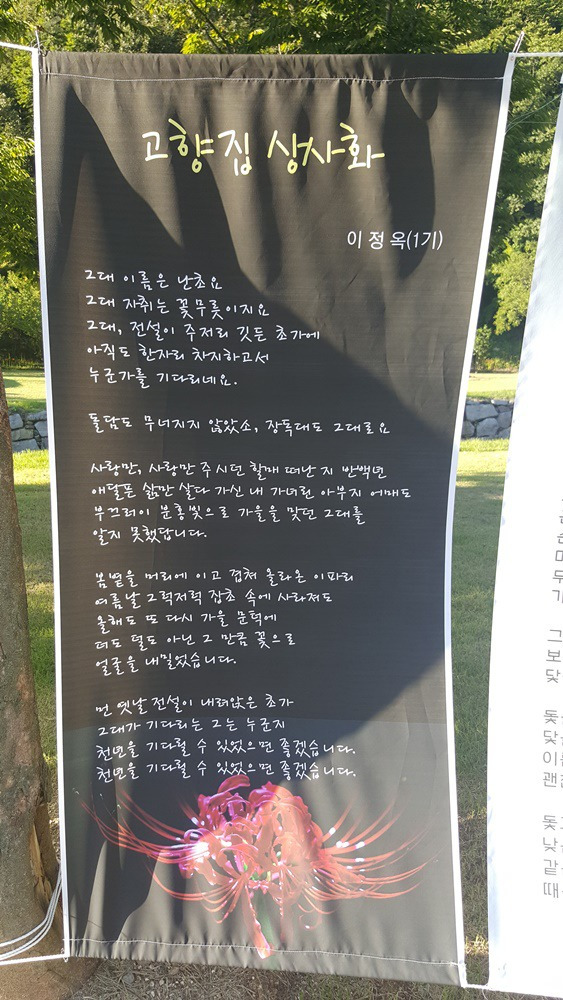 고향집 상사화
이정옥(1기)
그대 이름은 난초요
그대 자취는 꽃무릇이지요
그대, 전설이 주저리 깃든 초가에
아직도 한자리 차지하고서
누군가를 기다리네요.
돌담도 무너지지 않았소, 장독대도 그대로요
사랑만, 사랑만 주시던 할매 떠난 지 반백년
애달픈 삶만 살다 가신 내 가녀린 아부지 어매도
부끄러이 분홍빛으로 가을을 맞던 그대를
알지 못했답니다.
봄볕을 머리에 이고 겹쳐 올라온 이파리
여름날 그럭저럭 잡초 속에 사라져도
올해도 또 다시 가을 문턱에
더도 덜도 아닌 그 만큼 꽃으로
얼굴을 내밀었습니다.
먼 옛날 전설이 내려앉은 초가
그대가 기다리는 그는 누군지
천년을 기다릴 수 있었으면 좋겠습니다.
천년을 기다릴 수 있었으면 좋겠습니다.
그
보
닻
돛
이
괜
돛
낮
같
때